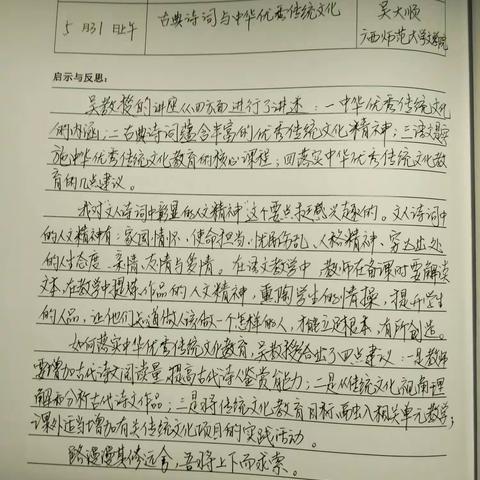 5月31日上午 古典诗词与中华优秀传统文化 吴大顺
广西师范大学文学院
启示与反思:
吴教授的讲座从四方面进行了讲述:一中华优秀传统文化
的内涵;二古典诗词蕴含丰富的优秀传统文化精神;三语文是实
施中华优秀传统文化教育的核心课程;四落实中华优秀传统文化教
育的几点建议。
我对文人诗词中彰显的人文精神这个要点是感兴趣的。文人诗词中
的人文精神有:家国情怀、使命担当、忧民伤乱、人格精神、穷达出处
的人生态度、亲情、友情与爱情。在语文教学中,教师在备课时要解读
文本,在教学中提炼作品的人文精神,熏陶学生的情操,提升学生
的人品,让他们知道做人该做一个怎样的人,才能立足根本,有所创造。
如何落实中华优秀传统文化教育,吴教授给出了四点建议:一是教师
要增加古代诗文阅读量,提高古代诗人鉴赏能力;二是从传统文化视角理
解和分析古代诗文作品;三是将传统文化教育目标融入相关单元教学;
课外适当增加有关传统文化项目的实践活动。
路漫漫其修远兮,吾将上下而求索。